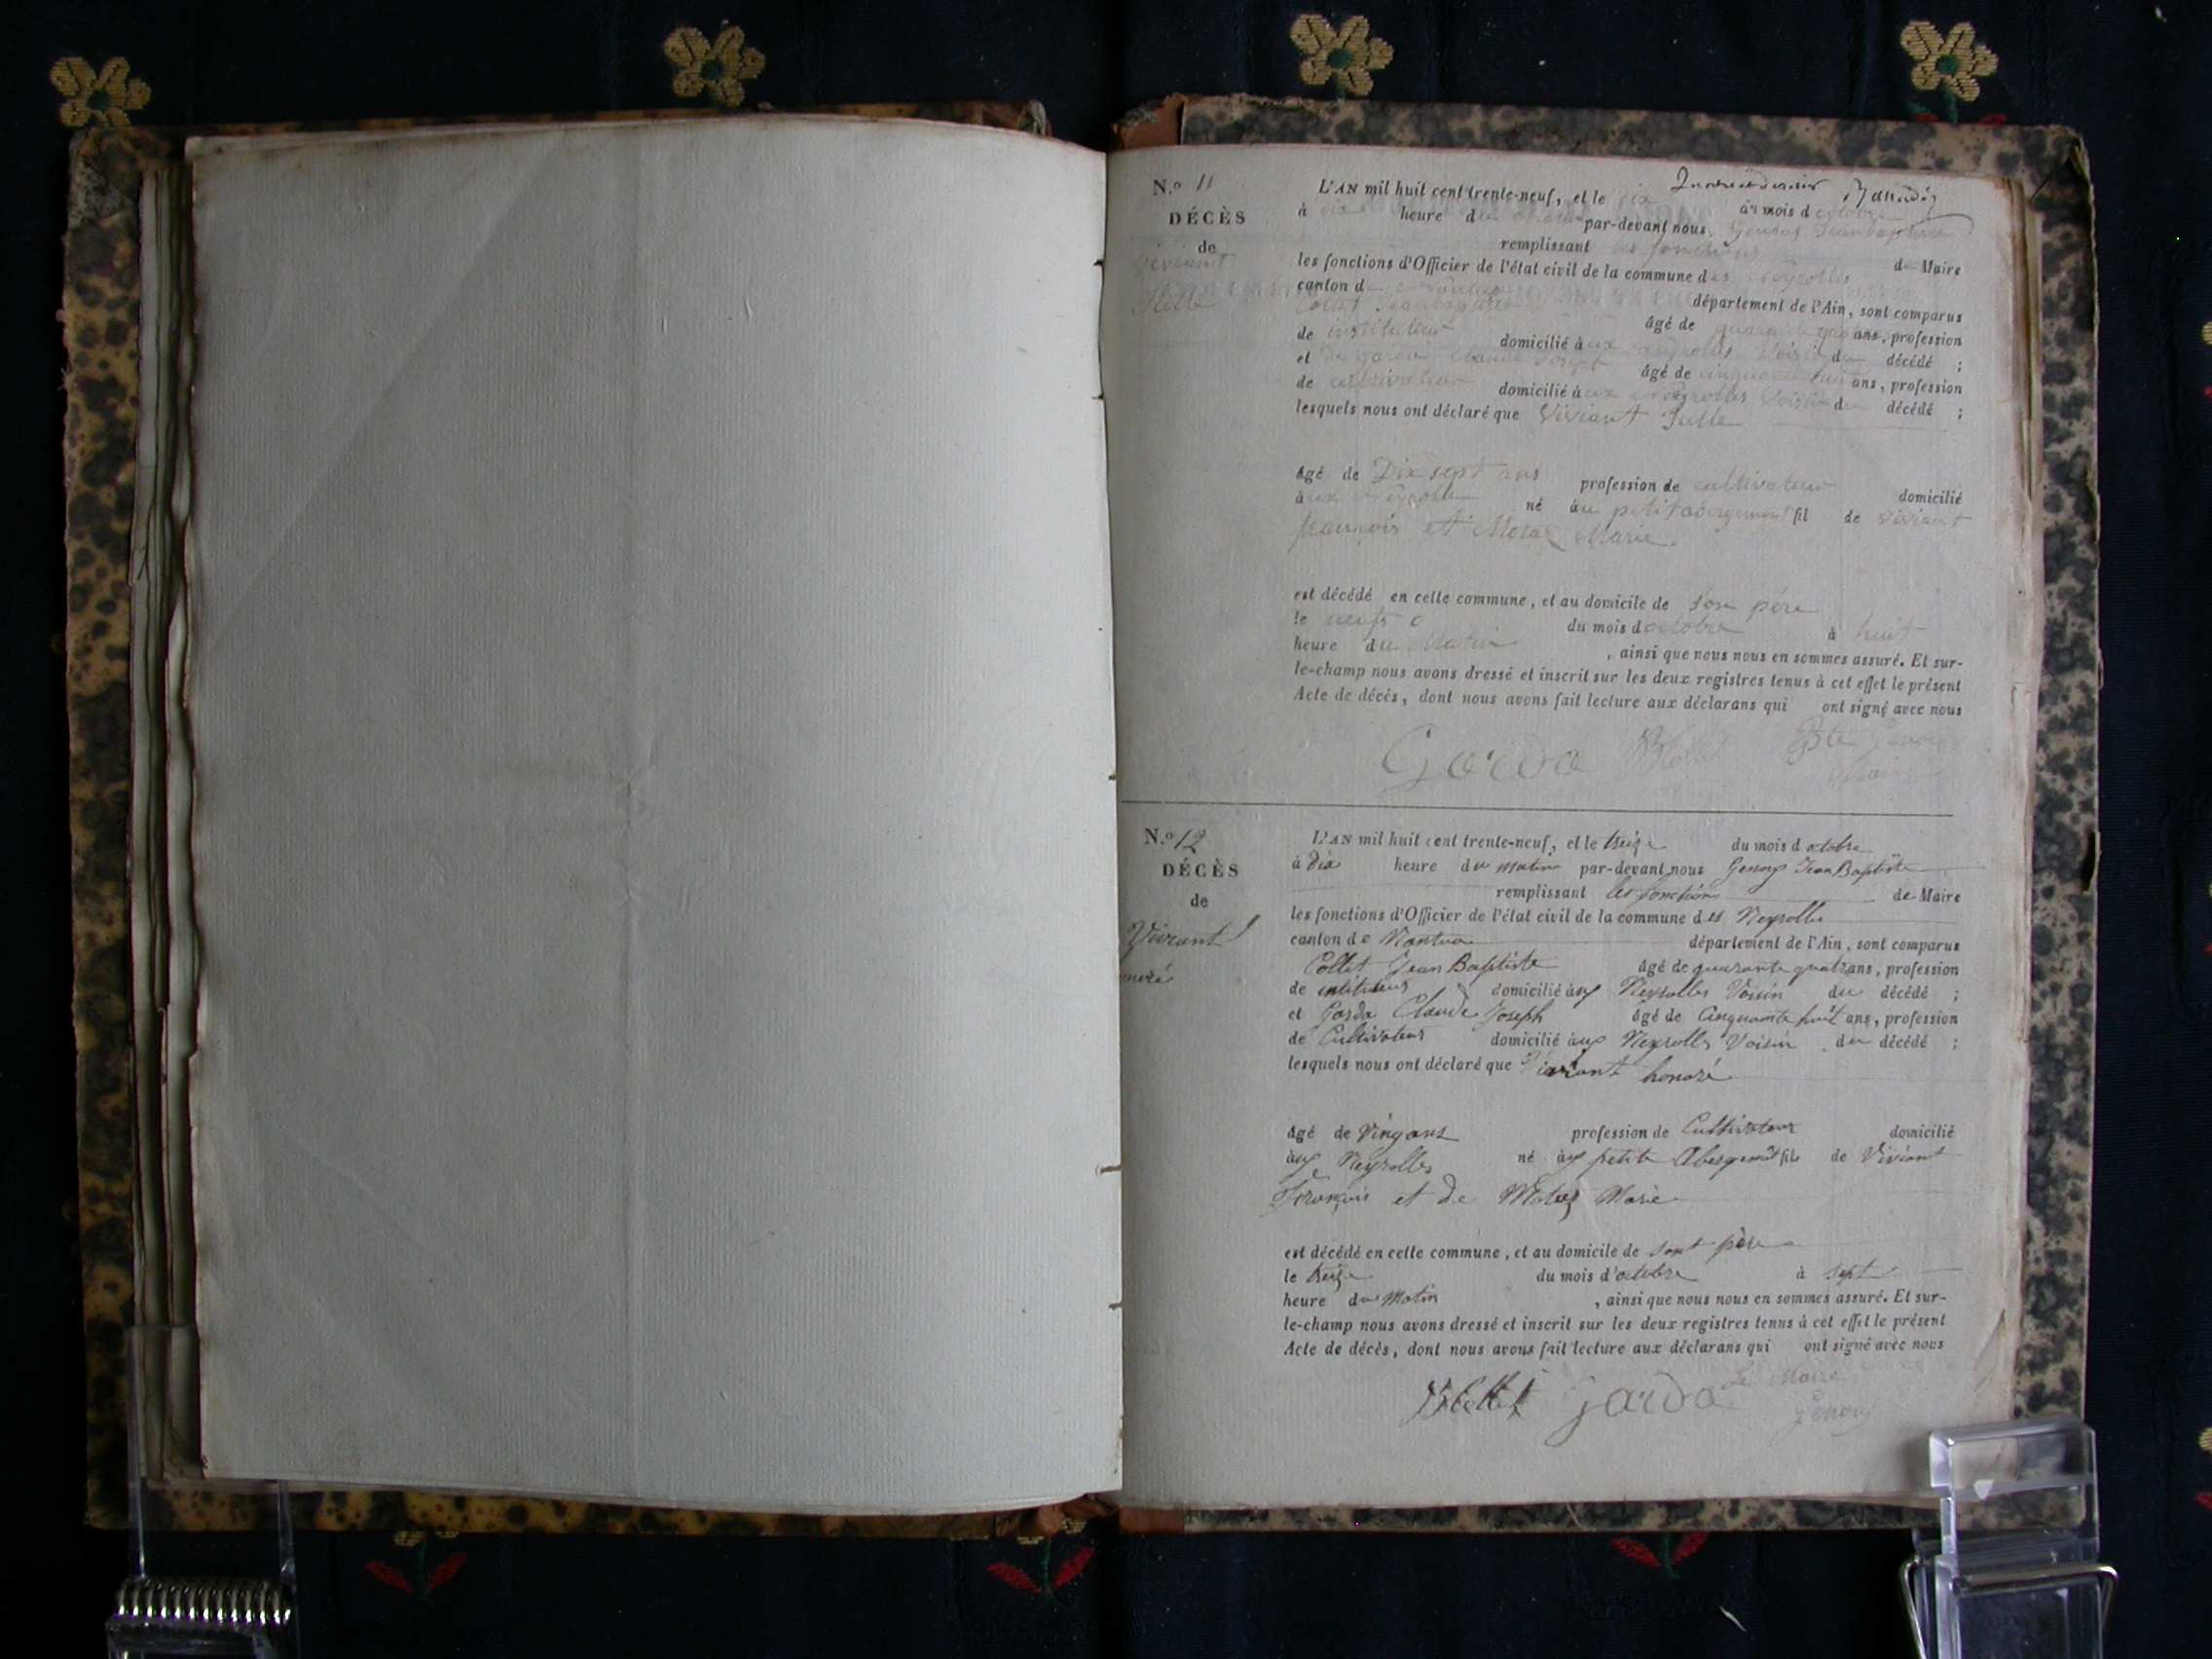 N.o 11
DÉCÈS
de
Viviant
L'AN mil huit cent trente-neuf, et le dix du mois d octobre
à dix heure d par-devant nous, Jean baptiste
remplissant les fonctions de Maire
les fonctions d'Officier de l'état civil de la commune des Neyrolles
canton de Nantua département de l'Ain, sont comparus
Collet Jean baptiste âgé de quarante ans, profession
de instituteur domicilié aux Neyrolles Voisin du décédé ;
et de garda Claude Joseph âgé de cinquante huit ans, profession
de cultivateur domicilié aux Neyrolles Voisin du décédé ;
lesquels nous ont déclaré que Viviant
âgé de Dix sept ans profession de cultivateur domicilié
aux Neyrolle né au petit abergement fil de Viviant
françois et Marie
est décédé en cette commune, et au domicile de son père
le neuf du mois d octobre à huit
heure du Matin , ainsi que nous nous en sommes assuré. Et sur-
le-champ nous avons dressé et inscrit sur les deux registres tenus à cet effet le présent
Acte de décès, dont nous avons fait lecture aux déclarans qui ont signé avec nous
Garda
N.o 12
DÉCÈS
de
Viviant
L'AN mil huit cent trente-neuf, et le treize du mois d octobre
à dix heure du matin par-devant nous Genoz Jean Baptiste
remplissant les fonctions de Maire
les fonctions d'Officier de l'état civil de la commune des Neyrolles
canton de Nantua département de l'Ain, sont comparus
Collet Jean Baptiste âgé de quarante quatr ans, profession
de domicilié aux Neyrolles Voisin du décédé ;
et Garda Claude Joseph âgé de Cinquante huit ans, profession
de Cultivateur domicilié aux Neyrolles Voisin du décédé ;
lesquels nous ont déclaré que Viviant honoré
âgé de Vingans profession de Cultivateur domicilié
aux Neyrolles né petit fils de Viviant
François et de Marie
est décédé en cette commune, et au domicile de sont père
le treize du mois d'octobre à sept
heure du Matin , ainsi que nous nous en sommes assuré. Et sur-
le-champ nous avons dressé et inscrit sur les deux registres tenus à cet effet le présent
Acte de décès, dont nous avons fait lecture aux déclarans qui ont signé avec nous
garda Le Maire